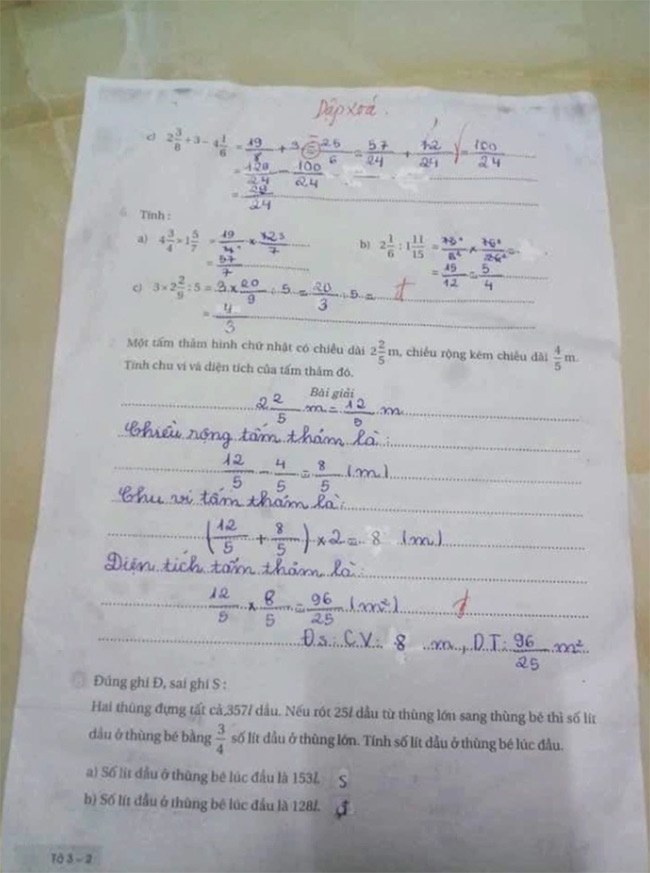 Dập xoá.
c) 2 3/8 + 3 - 4 1/6 = 19/8 + 3 = 25/6 = 57/24 + 72/24 = 100/24
= 129/24 - 100/24
= 29/24
Tính :
a) 4 3/4 × 1 5/7 = 19/4 × 12 3/7
= 57/7
b) 2 1/6 : 1 11/15 =
= 15/12 = 5/4
c) 3 × 2 2/9 : 5 = 3 × 20/9 : 5 = 20/3 : 5 =
= 4/3
Một tấm thảm hình chữ nhật có chiều dài 2 2/5 m, chiều rộng kém chiều dài 4/5 m.
Tính chu vi và diện tích của tấm thảm đó.
Bài giải
2 2/5 m = 12/5 m
Chiều rộng tấm thảm là:
12/5 - 4/5 = 8/5 (m)
Chu vi tấm thảm là:
(12/5 + 8/5) × 2 = 8 (m)
Diện tích tấm thảm là:
12/5 × 8/5 = 96/25 (m²)
Đs: C.V: 8 m, D.T: 96/25 m²
Đúng ghi Đ, sai ghi S :
Hai thùng đựng tất cả 357l dầu. Nếu rót 25l dầu từ thùng lớn sang thùng bé thì số lít
dầu ở thùng bé bằng 3/4 số lít dầu ở thùng lớn. Tính số lít dầu ở thùng bé lúc đầu.
a) Số lít dầu ở thùng bé lúc đầu là 153l. S
b) Số lít dầu ở thùng bé lúc đầu là 128l.
T6 3 - 2